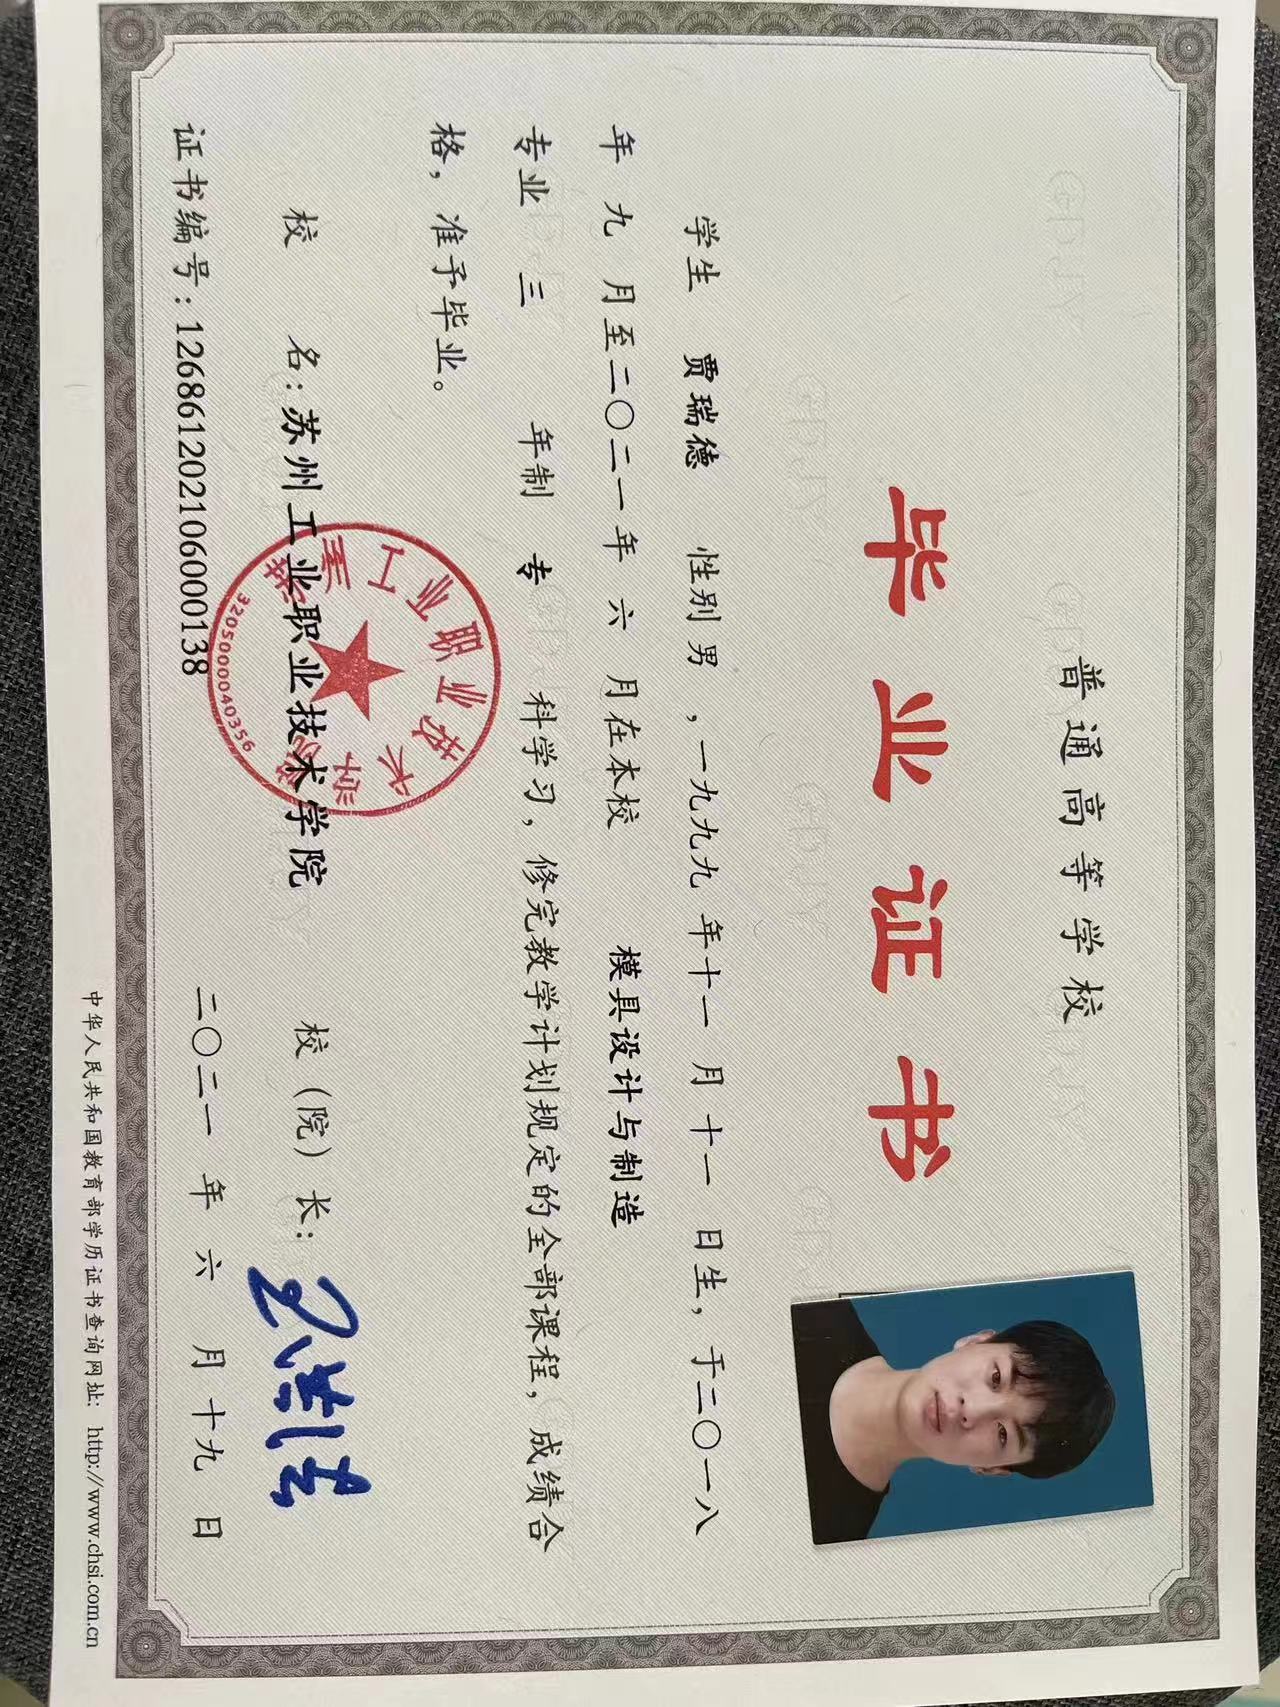 普通高等学校
毕业证书
学生 贾瑞德 性别 男 ，一九九九 年十一 月 十一 日生，于二〇一八
年 九 月至二〇二一年 六 月在本校 模具设计与制造
专业 三 年制 专 科学习，修完教学计划规定的全部课程，成绩合
格，准予毕业。
校 名：苏州工业职业技术学院 校（院）长：
证书编号：126861202106000138 二〇二一 年 六 月 十九 日
3205000040356
中华人民共和国教育部学历证书查询网址： http://www.chsi.com.cn